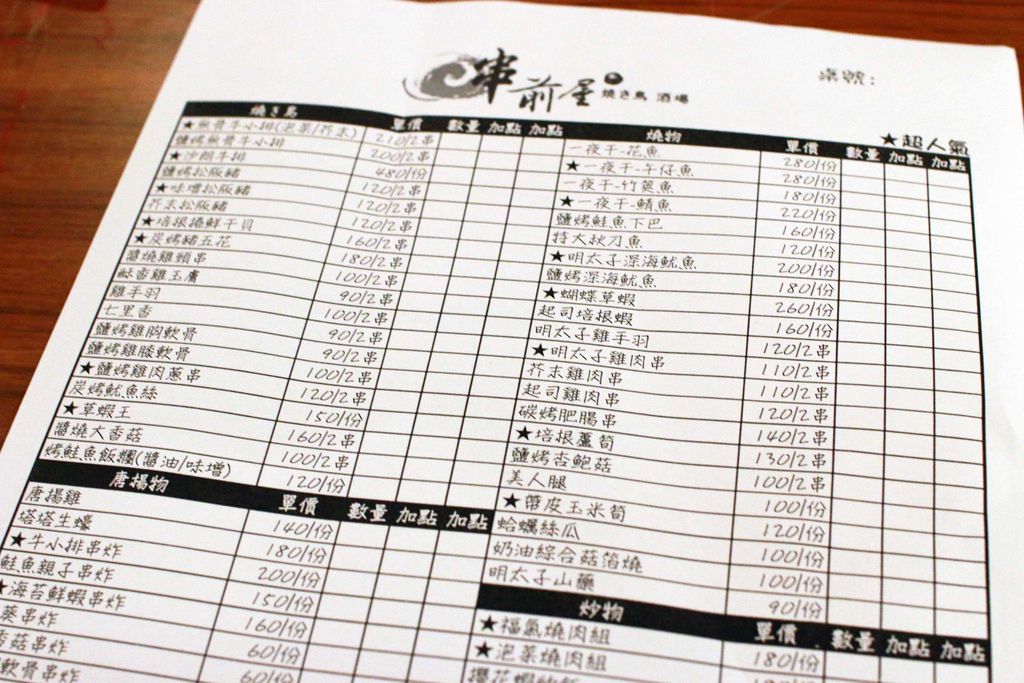 串前屋 燒き鳥 酒場
桌號:
★超人氣
燒き鳥 單價 數量 加點 加點
★無骨牛小排(泡菜/芥末)
鹽烤無骨牛小排
★沙朗牛排
鹽烤松阪豬
★味增松阪豬
芥末松阪豬
★培根捲鮮干貝
★炭烤豬五花
醬燒雞頸串
酥香雞玉膚
雞手羽
七里香
鹽烤雞胸軟骨
鹽烤雞膝軟骨
★鹽烤雞肉蔥串
炭烤魷魚絲
★草蝦王
醬燒大香菇
烤鮭魚飯糰(醬油/味增)
210/2串
200/2串
480/份
120/2串
120/2串
120/2串
160/2串
180/2串
100/2串
90/2串
100/2串
90/2串
90/2串
120/2串
150/份
160/2串
100/2串
120/份
唐揚物 單價 數量 加點 加點
唐揚雞 140/份
塔塔生蠔 180/份
★牛小排串炸 200/份
鮭魚親子串炸 150/份
★海苔鮮蝦串炸 160/份
串炸 60/份
香菇串炸 60/份
軟骨串炸
燒物 單價 數量 加點 加點
一夜干-花魚 280/份
★一夜干-午仔魚 280/份
一夜干-竹筴魚 180/份
★一夜干-鯖魚 220/份
鹽烤鮭魚下巴 160/份
特大秋刀魚 120/份
★明太子深海魷魚 200/份
鹽烤深海魷魚 180/份
★蝴蝶草蝦 260/份
起司培根蝦 160/份
明太子雞手羽 120/2串
★明太子雞肉串 110/2串
芥末雞肉串 110/2串
起司雞肉串 120/2串
碳烤肥腸串 140/2串
★培根蘆筍 130/2串
鹽烤杏鮑菇 100/2串
美人腿 100/份
★帶皮玉米筍 120/份
蛤蠣絲瓜 100/份
奶油綜合菇箔燒 100/份
明太子山藥 90/份
炒物 單價 數量 加點 加點
★福氣燒肉組 180/份
★泡菜燒肉組